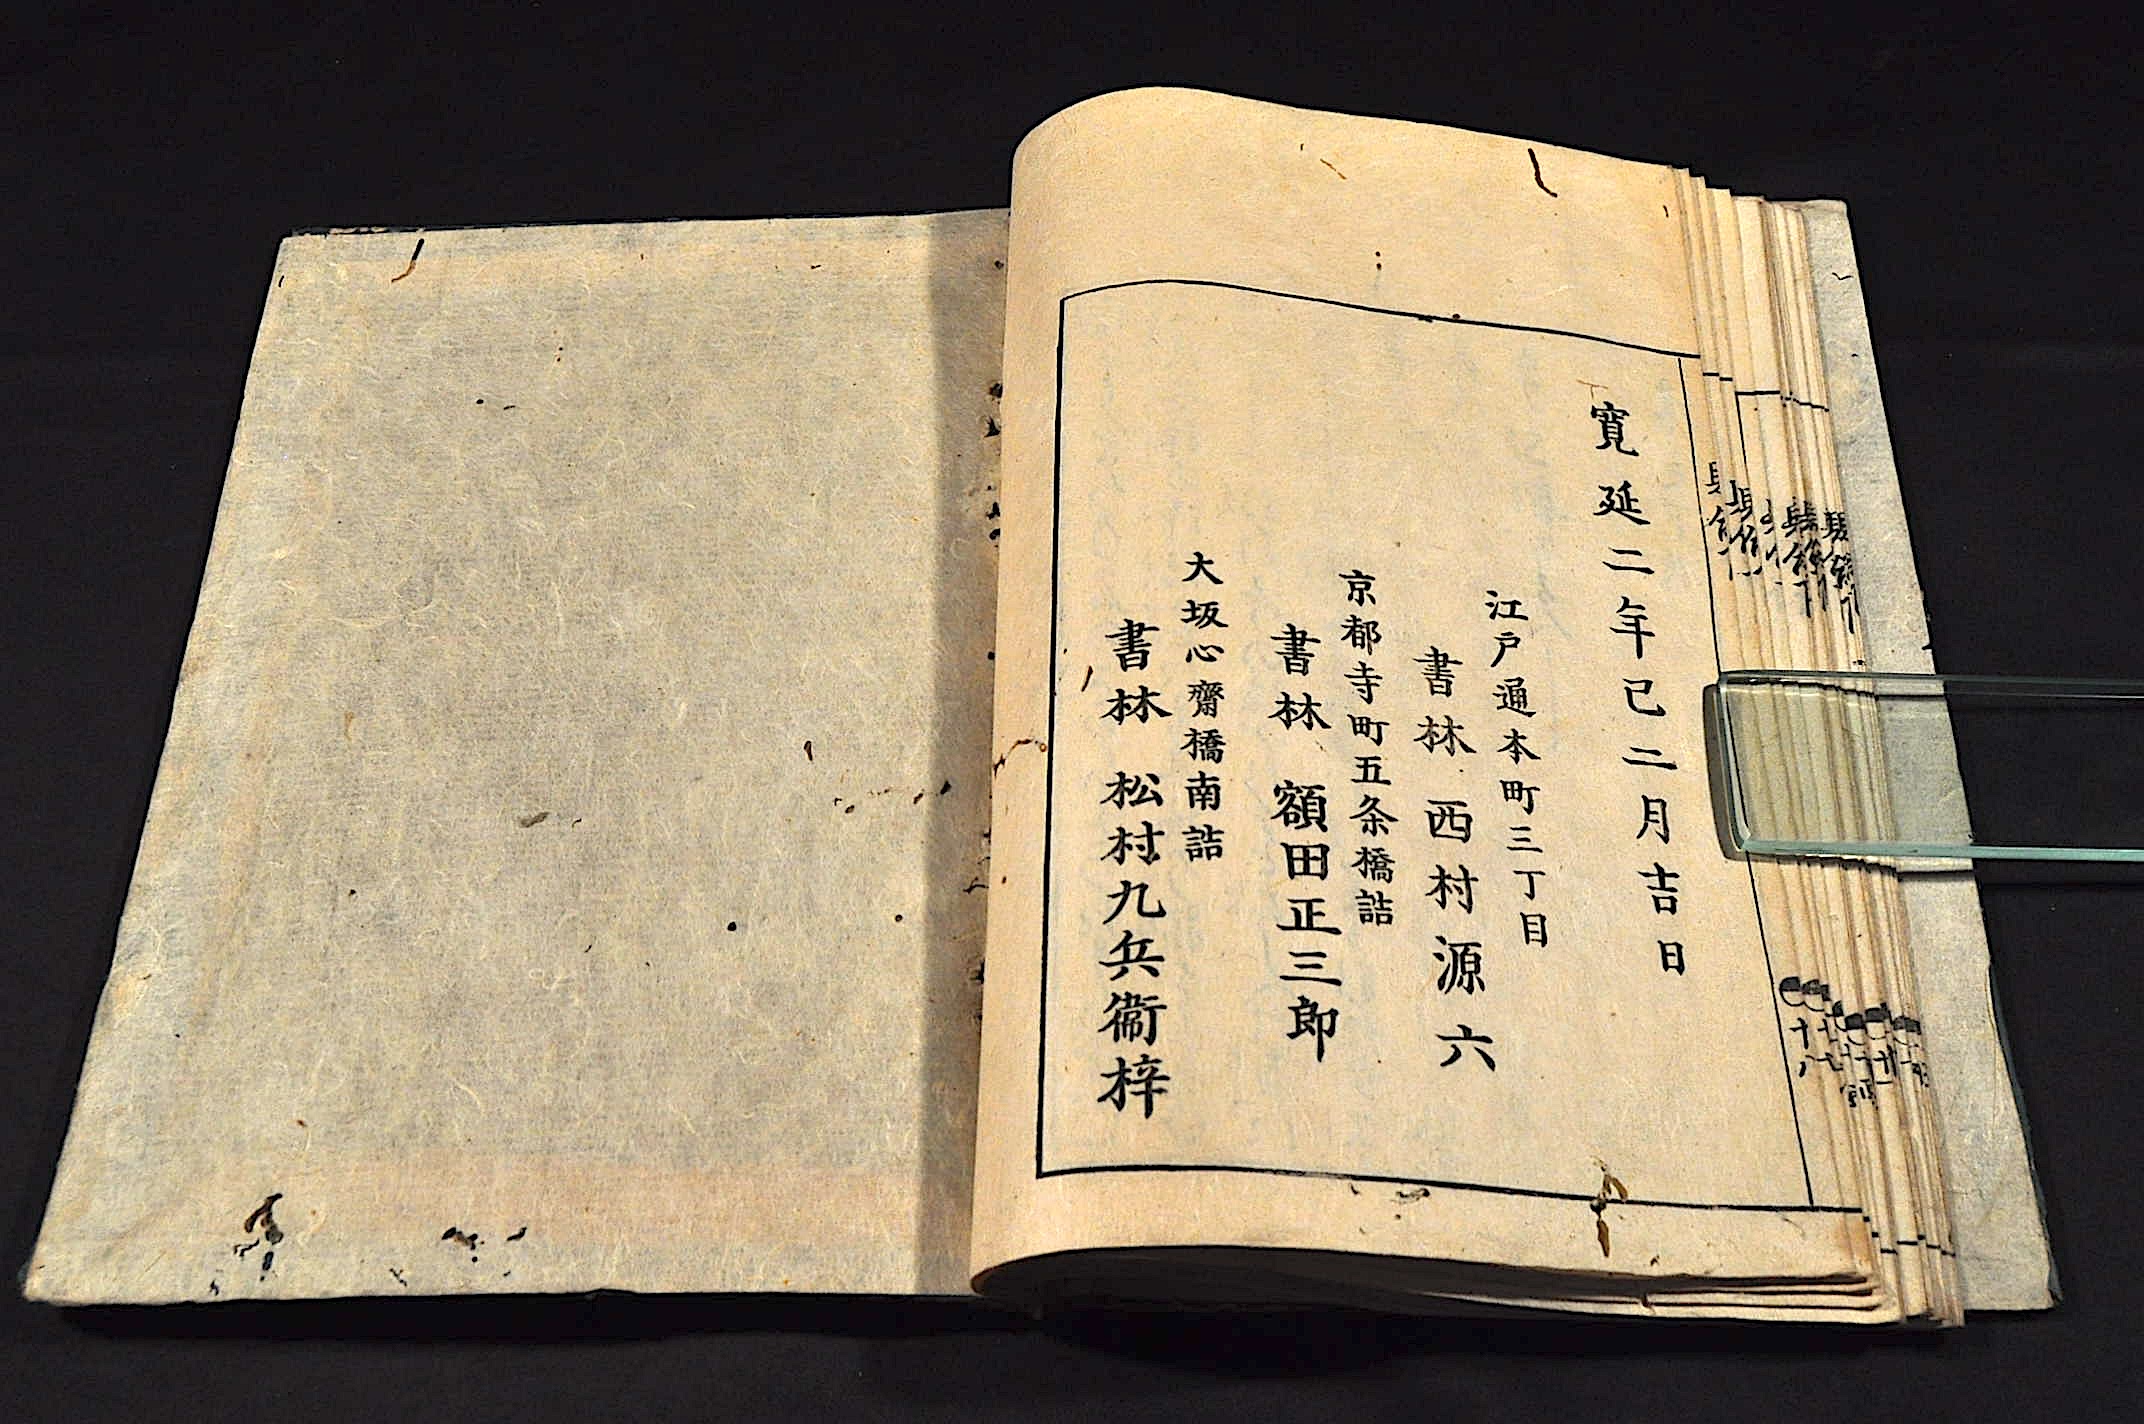 寛延二年己巳二月吉日
江戸通本町三丁目
書林 西村源六
京都寺町五条橋詰
書林 額田正三郎
大坂心齋橋南詰
書林 松村九兵衞梓
十八